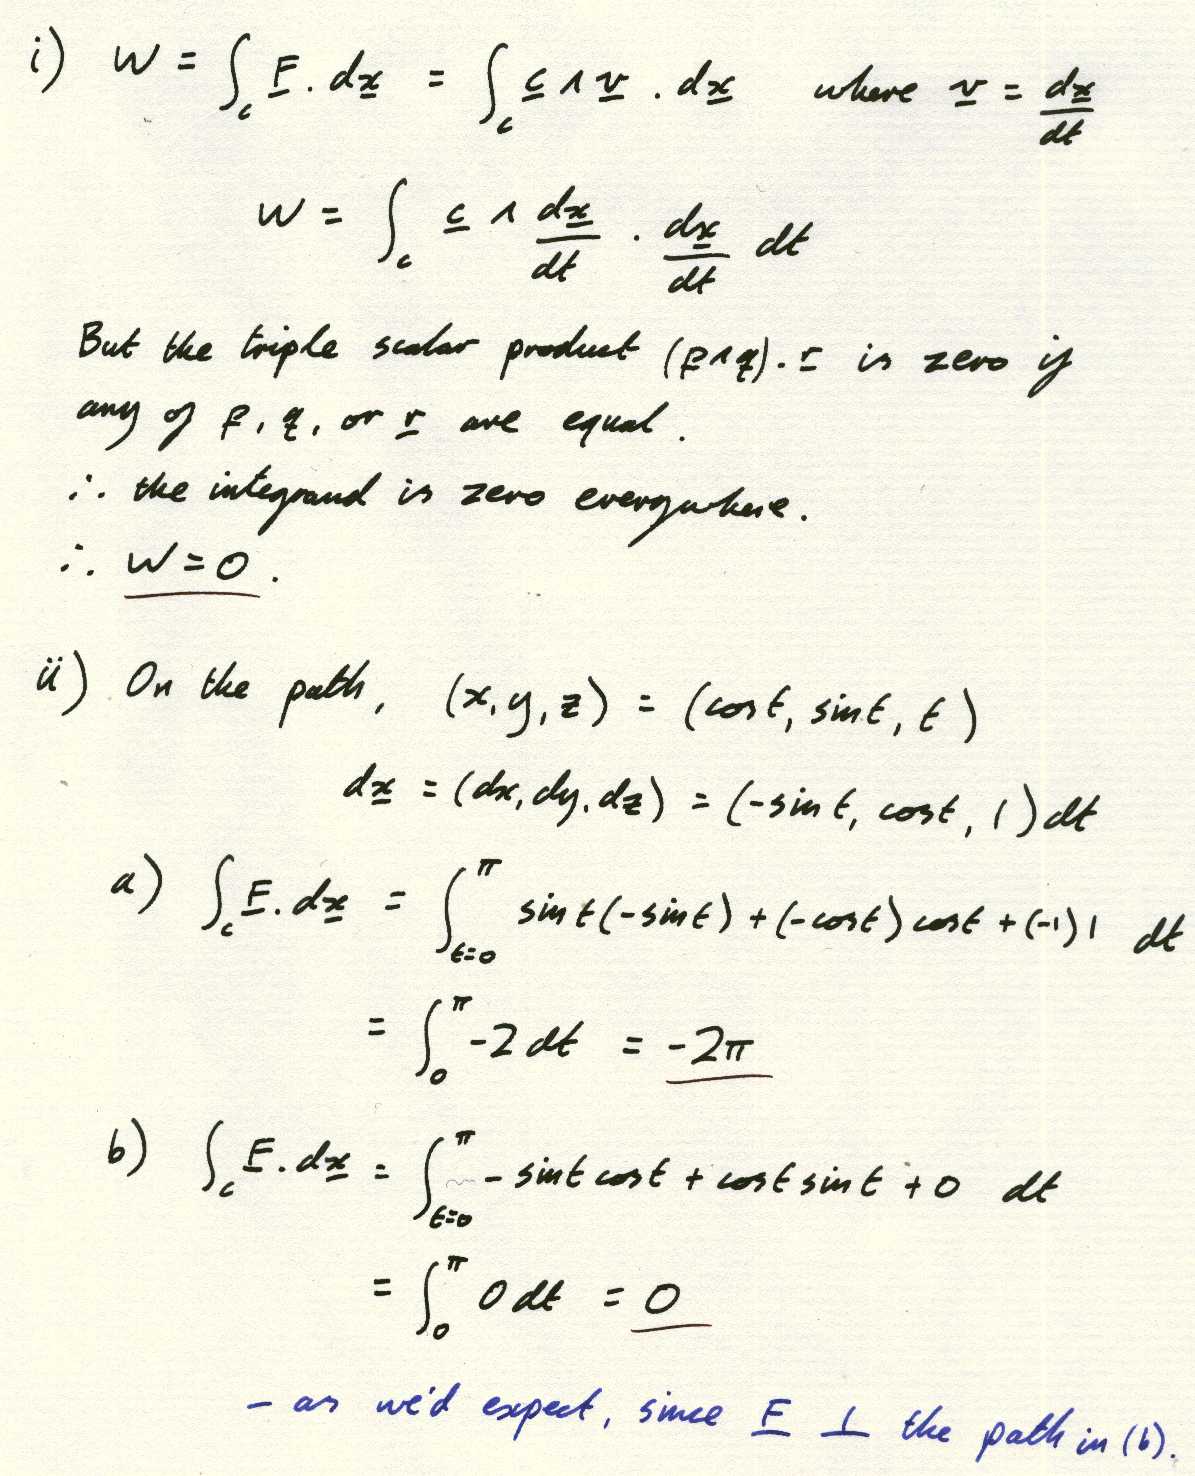 i) W = ∫_c F̲ . dx̲ = ∫_c c̲ ∧ v̲ . dx̲ where v̲ = dx̲/dt
W = ∫_c c̲ ∧ dx̲/dt . dx̲/dt dt
But the triple scalar product (p̲∧q̲). r̲ is zero if
any of p̲, q̲, or r̲ are equal.
∴ the integrand is zero everywhere.
∴ W = 0.
ii) On the path, (x, y, z) = (cos t, sin t, t)
dx̲ = (dx, dy, dz) = (-sin t, cos t, 1) dt
a) ∫_c F̲. dx̲ = ∫_{t=0}^π sin t (-sin t) + (-cos t) cos t + (-1) 1 dt
= ∫_0^π -2 dt = -2π
b) ∫_c F̲. dx̲ = ∫_{t=0}^π - sin t cos t + cos t sin t + 0 dt
= ∫_0^π 0 dt = 0
- as we'd expect, since F̲ ⊥ the path in (b).